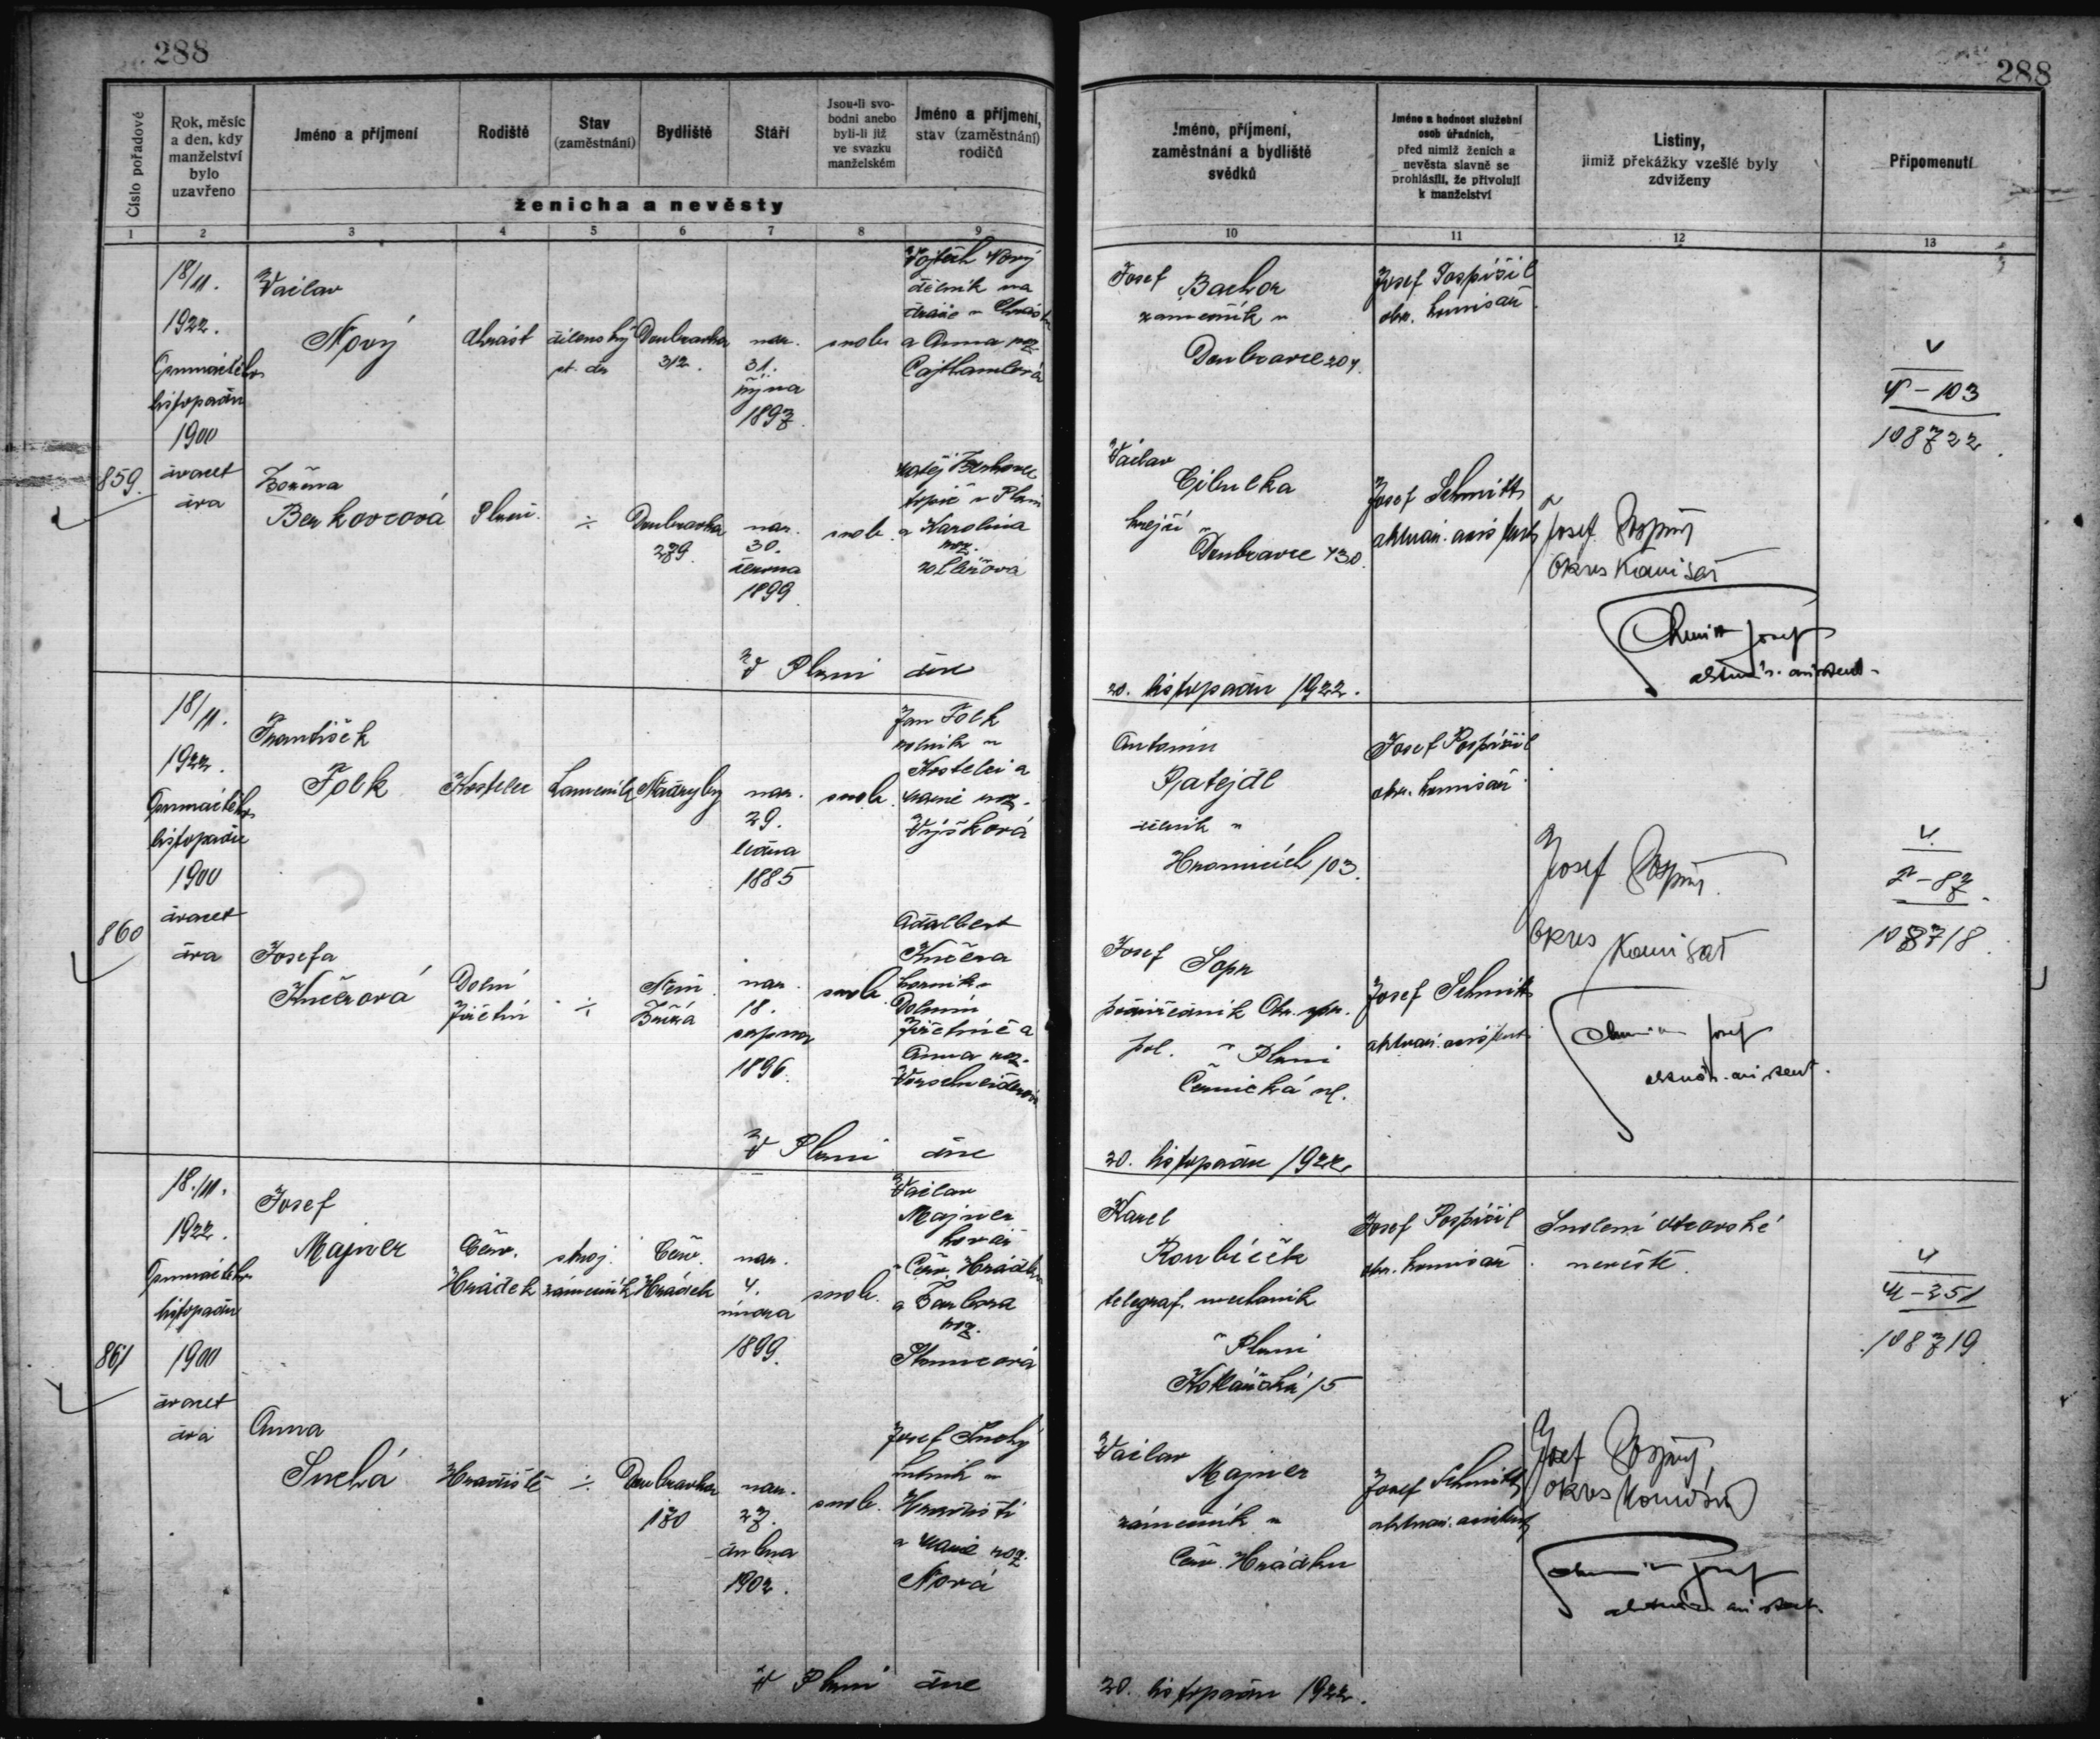 288
288
Číslo pořadové
Rok, měsíc
a den, kdy
manželství
bylo
uzavřeno
Jméno a příjmení
Rodiště
Stav
(zaměstnání)
Bydliště
Stáří
Jsou-li svo-
bodni anebo
byli-li již
ve svazku
manželském
Jméno a příjmení,
stav (zaměstnání)
rodičů
ženicha a nevěsty
Jméno, příjmení,
zaměstnání a bydliště
svědků
Jméno a hodnost služební
osob úřadních,
před nimiž ženich a
nevěsta slavně se
prohlásili, že přivolují
k manželství
Listiny,
jimiž překážky vzešlé byly
zdviženy
Připomenutí
1 2 3 4 5 6 7 8 9 10 11 12 13
859.
18/11.
1922.
listopadu
1900
dvacet
dva
Václav
Nový
Chrást
Doubravka
312.
nar.
31.
října
1897.
svob.
Vojtěch Nový
dělník na
dráze v
a Anna roz.
Cajthamlová
Josef Bachor
zámečník v
Doubravce 207.
Josef Pospíšil
okr. komisař.
V
N - 103
108722.
Božena
Berkovcová
Plzeň.
÷
Doubravka
279.
nar.
30.
června
1899.
svob.
Matěj Berkovec
topič v Plzni
a Karolina
roz.
Václav
Cibulka
krejčí
Doubravce 430.
Josef Schmitt
aktuár. asistent
Josef Pospíšil
Okres Komisař
Schmitt Josef
aktuár. asistent
V Plzni dne
20. listopadu 1922.
860
18/11.
1922.
listopadu
1900
dvacet
dva
František
Folk
Kostelec
Nadryby
nar.
29.
ledna
1885
svob.
Jan Folk
rolník v
Kostelci a
Marie roz.
Výšková
Antonín
Ratejdl
dělník v
Hromnicích 103.
Josef Pospíšil
okr. komisař.
V.
F - 87.
108718.
Josefa
Kučerová
Dolní
Jiřetín
÷
Něm.
Bříza
nar.
18.
srpna
1896.
svob.
Adalbert
Kučera
horník v
Dolním
Jiřetíně a
Anna roz.
Josef Sopr
pol. v Plzni
Černická ul.
Josef Schmitt
aktuár. asistent
Josef Pospíšil
Okres Komisař
Schmitt Josef
aktuár. asistent.
V Plzni dne
20. listopadu 1922.
861
18./11.
1922.
listopadu
1900
dvacet
dva
Josef
Majner
Červ.
Hrádek
stroj.
zámečník
Červ.
Hrádek
nar.
4.
února
1899.
svob.
Václav
Majner
kovář
v Červ. Hrádku
a Barbora
roz.
Karel
Roubíček
telegraf. mechanik
v Plzni
Josef Pospíšil
okr. komisař.
Svolení otcovské
nevěstě.
V
M - 251
108719
Anna
Suchá
Hradiště
÷
Doubravka
170
nar.
27.
dubna
1902.
svob.
Josef Suchý
hutník v
Hradišti
a Marie roz.
Nová
Václav
Majner
zámečník v
Červ. Hrádku
Josef Schmitt
aktuár. asistent
Josef Pospíšil
okres Komisař
Schmitt Josef
aktuár. asistent
V Plzni dne
20. listopadu 1922.